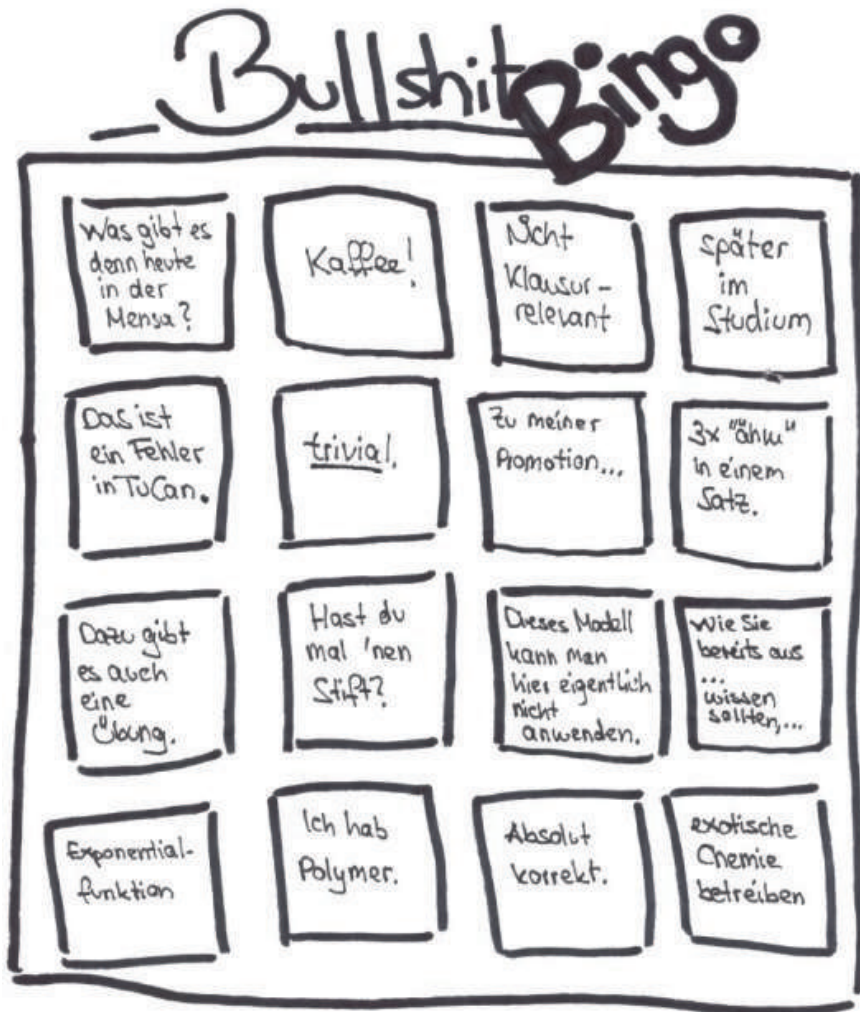 Bullshit Bingo
Was gibt es
denn heute
in der
Mensa?
Kaffee!
Nicht
Klausur-
relevant
später
im
Studium
Das ist
ein Fehler
in TuCan.
trivial.
Zu meiner
Promotion...
3x "ähm"
in einem
Satz.
Dazu gibt
es auch
eine
Übung.
Hast du
mal 'nen
Stift?
Dieses Modell
kann man
hier eigentlich
nicht
anwenden.
Wie Sie
bereits aus
...
wissen
sollten,...
Exponential-
funktion
Ich hab
Polymer.
Absolut
korrekt.
exotische
Chemie
betreiben